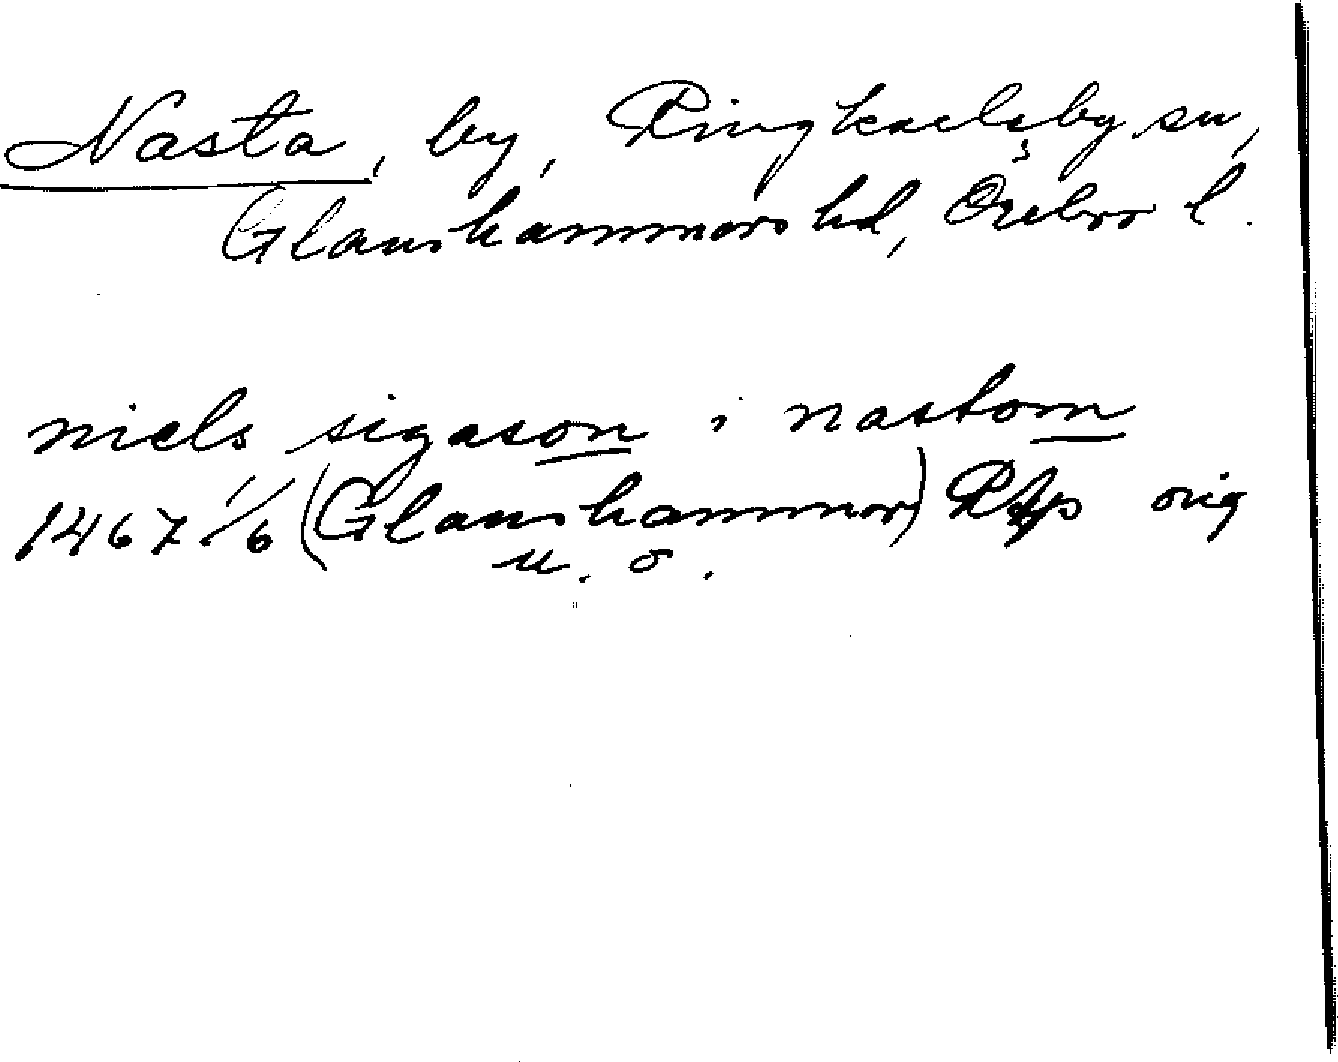 Nasta, by, Ringkarlsby sn,
Glanshammars hd, Örebro l.
niels sigason i nastom
1467 1/6 (Glanshammar) RAp orig
u. o.